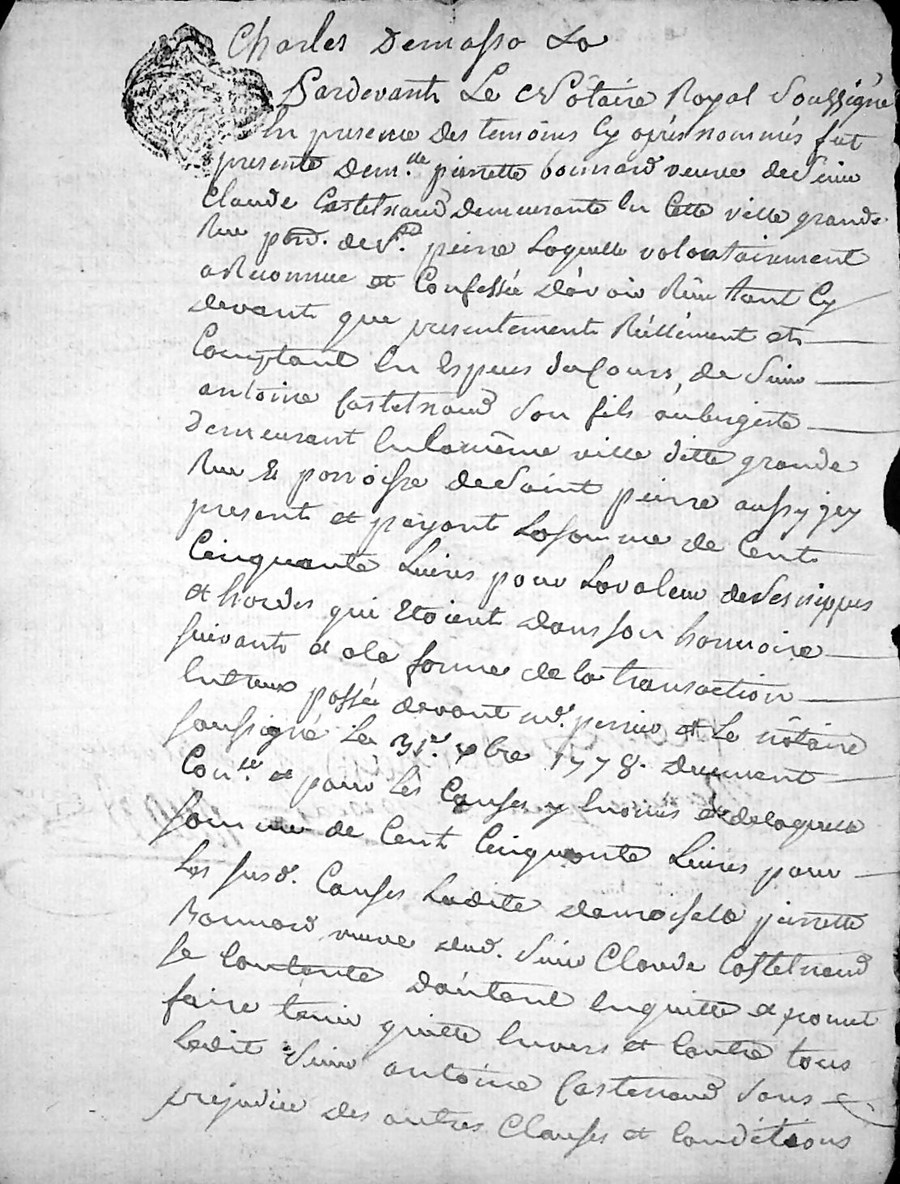 Charles Demasso La
Pardevant Le Nôtaire Royal Soussigné
En presence des temoins Cy après nommés fut
presente dem.lle pierrette bonnard veuve de Sieur
Claude Castelnaud demeurante En Cette ville grande
Rue par. de St. pierre Laquelle volontairement
a Reconnue et Confessée d'avoir Reçu tant Cy
devant que presentement Réellement et
Comptant En Especes du Cours, de Sieur
antoine Castelnaud Son fils aubergiste
demeurant En la même ville ditte grande
Rue & parroisse de Saint pierre aussy icy
present et payant La Somme de Cent
Cinquante Livres pour La valeur de Ses nippes
et hardes qui Etoient dans Son harmoire
suivant et a la forme de la transaction
Entreux passée devant m.e perrin et Le nôtaire
soussigné Le 31.e xbre 1778. duement
Con.lée et pour Les Causes y Enoncées de laquelle
somme de Cent Cinquante Livres pour
Les susd. Causes Ladite demoiselle pierrette
Bonnard veuve dud. Sieur Claude Castelnaud
se Contente d'autant En quitte et promet
faire tenir quitte Envers et Contre tous
Ledit Sieur antoine Castelnaud Sans
préjudice des autres Clauses et Conditions